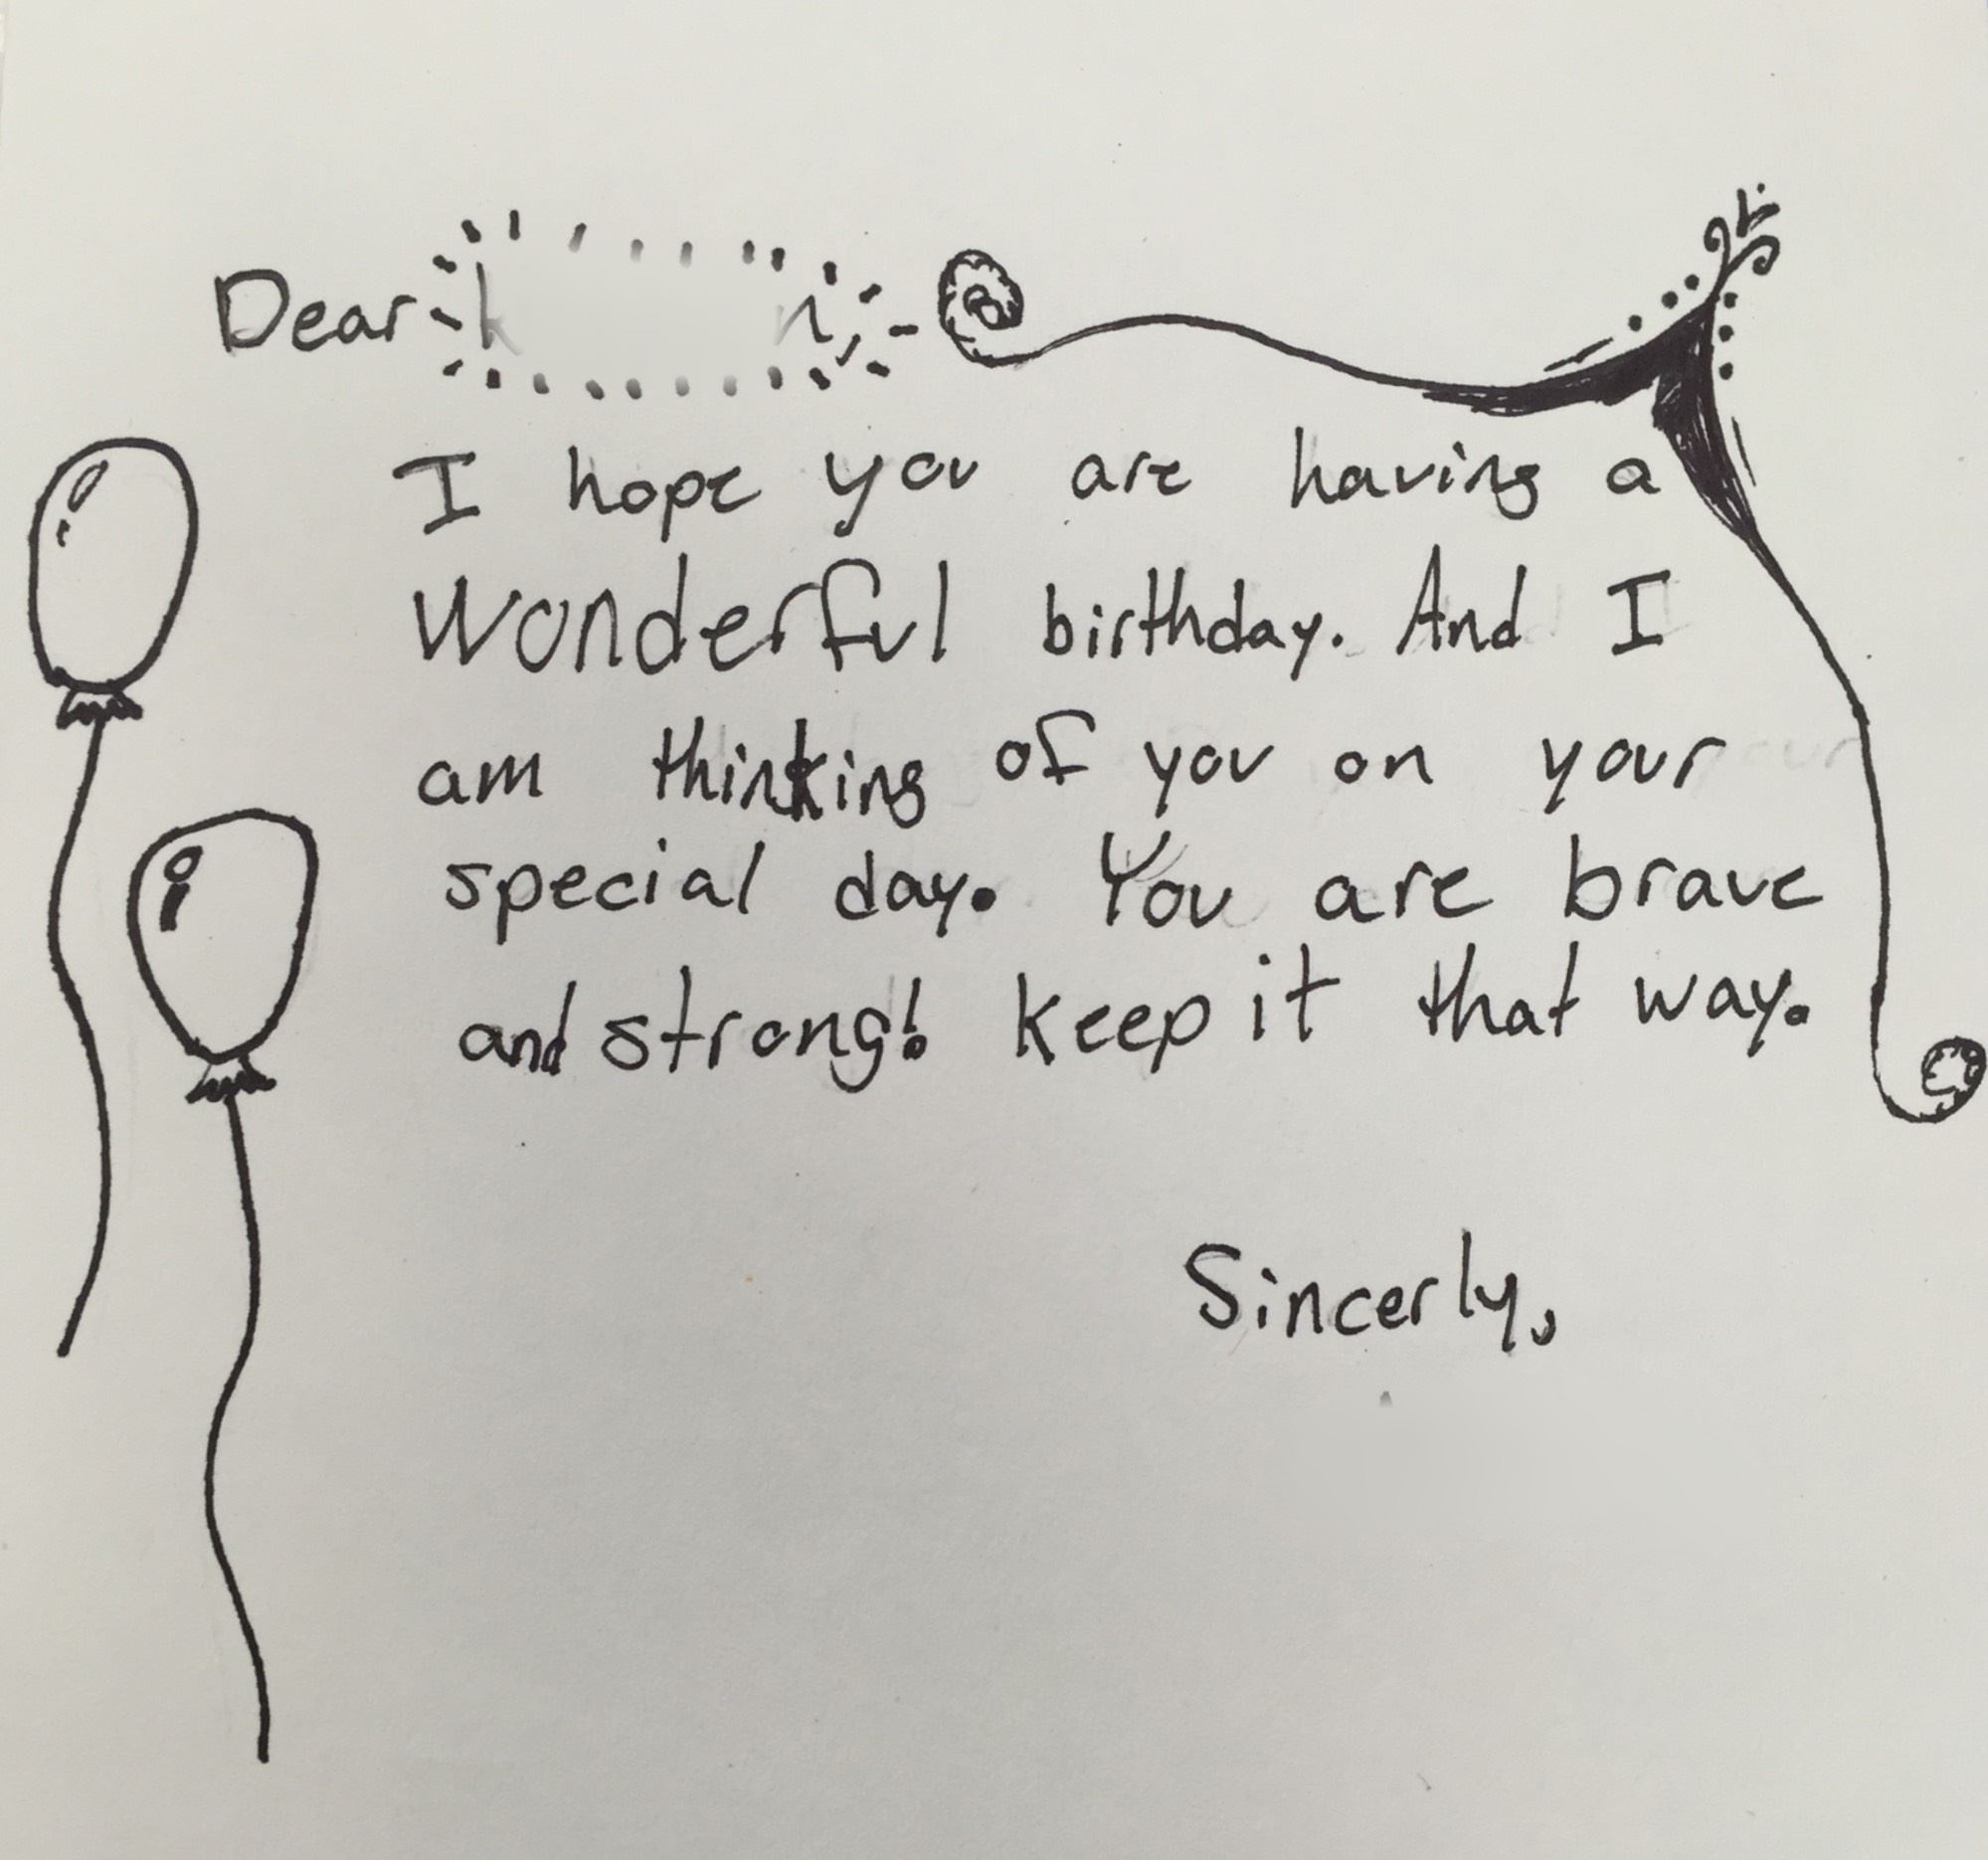 Dear
I hope you are having a
Wonderful birthday. And I
am thinking of you on your
special day. You are brave
and strong! Keep it that way.
Sincerly,